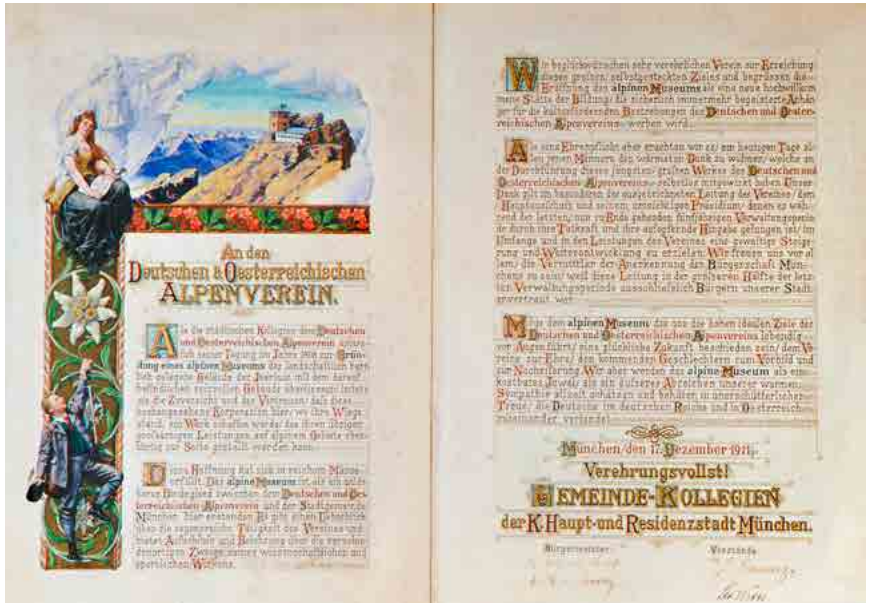 An den
Deutschen & Oesterreichischen
ALPENVEREIN.
Als die städtischen Kollegien dem Deutschen
und Oesterreichischen Alpenverein
seiner Tagung im Jahre zur Grün-
dung eines alpinen Museums das landschaftlich herr-
lich gelegene Gebäude der Isarlust mit dem
befindlichen Gelände
sie die Zuversicht und das Vertrauen, daß diese
hochangesehene Korporation hier, wo ihre Wiege
stand, ein Werk schaffen werde, das ihren übrigen
großartigen Leistungen auf alpinem Gebiete eben-
bürtig zur Seite gestellt werden kann.
Diese Hoffnung hat sich in reichem Masse
erfüllt. Das alpine Museum ist als ein
Bindeglied zwischen dem Deutschen und Oes-
terreichischen Alpenverein und der Stadtgemeinde
München hier erstanden. Es gibt einen Ueberblick
über die segensreiche Tätigkeit des Vereines und
bietet Aufschluß und Belehrung über die verschie-
denartigen Zweige seines wissenschaftlichen und
sportlichen Wirkens.
Wir beglückwünschen den sehr verehrlichen Verein zur Erreichung
dieses großen, selbstgesteckten Zieles und begrüssen die
Eröffnung des alpinen Museums als eine neue hochwillkom
mene Stätte der Bildung, die sicherlich immermehr begeisterte Anhän
ger für die kulturfördernden Bestrebungen des Deutschen und Oester-
reichischen Alpenvereins werben wird.
Als eine Ehrenpflicht aber erachten wir es, am heutigen Tage al-
len jenen Männern den wärmsten Dank zu widmen, welche an
der Durchführung dieses jüngsten, großen Werkes des Deutschen und
Oesterreichischen Alpenvereins selbstlos mitgewirkt haben. Unser
Dank gilt im besonderen der ausgezeichneten Leitung des Vereins, dem
Hauptausschuß und seinem umsichtigen Präsidium, denen es wäh-
rend der letzten, nun zu Ende gehenden fünfjährigen Verwaltungsperio
de durch ihre Tatkraft und ihre aufopfernde Hingabe gelungen ist, im
Umfange und in den Leistungen des Vereines eine gewaltige Steige-
rung und Weiterentwicklung zu erzielen. Wir freuen uns vor al
lem, die Vermittler der Anerkennung der Bürgerschaft Mün-
chens zu sein, weil diese Leitung in der größeren Hälfte der letz-
ten Verwaltungsperiode ausschließlich Bürgern unserer Stadt
anvertraut war.
Möge dem alpinen Museum, das uns die hohen idealen Ziele des
Deutschen und Oesterreichischen Alpenvereins lebendig
vor Augen führt, eine glückliche Zukunft beschieden sein, dem Ve
rein zur Ehre, den kommenden Geschlechtern zum Vorbild und
zur Nacheiferung. Wir aber werden das alpine Museum als ein
kostbares Juwel, als ein äußeres Abzeichen unserer warmen
Sympathie allzeit schätzen und behüten, in unerschütterlicher
Treue, die Deutsche im deutschen Reiche und in Oesterreich
verbindet.
München, den 17. Dezember 1911.
Verehrungsvollst!
GEMEINDE-KOLLEGIEN
der K. Haupt- und Residenzstadt München.
Bürgermeister Vorstände